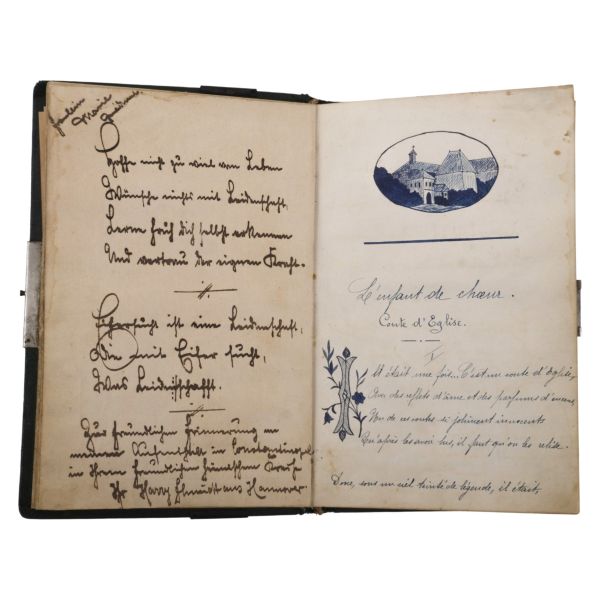 Fräulein
Marie
Hoffe nicht zu viel vom Leben
Wünsche nichts mit Leidenschaft,
Lerne früh dich selbst erkennen
Und vertrau der eignen Kraft.
Eifersucht ist eine Leidenschaft,
Die mit Eifer sucht,
Was Leiden schafft.
Zur freundlichen Erinnerung an
meinen Aufenthalt in Constantinopel
in Ihrem freundlichen heimischen Kreise
Ihr Harry Schmidt aus Hannover
L'enfant de chœur.
Conte d'Eglise.
I
Il était une fois... C'est un conte d'Eglise,
Avec des reflets d'âme et des parfums d'encens,
Un de ces contes si joliment innocents
Qu'après les avoir lus, il faut qu'on les relise.
Donc, sous un ciel teinté de légende, il était,